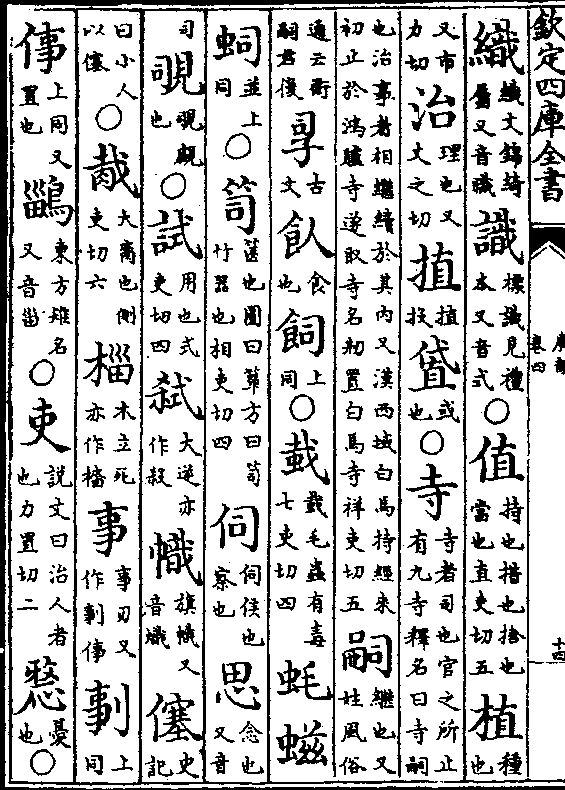 欽定四庫全書 廣韻卷四 十四
織織文錦綺屬又音職識標識見禮本又音式○值持也措也捨也當也直吏切五植種也
又市力切治理也又丈之切㨁植投或也○寺寺者司也官之所止有九寺釋名曰寺嗣
也治事者相繼續於其內又漢西域白馬持經來初止於鴻臚寺遂取寺名剏置白馬寺祥吏切五嗣繼也又姓風俗
通云衛嗣君後古文飤食也飼上同○蛓蛓毛蟲有毒七吏切四蚝螆
並上同○笥篋也圓曰簞方曰笥竹器也相吏切四伺伺侯也察也思念也又音
司覗覗覰也○試用也式吏切四弑大逆亦作殺幟旗幟又音熾僿史記
曰小人以僿○胾大臠也側吏切六椔木立死亦作事事刃又作剚倳剚上同
倳上同又置也鶅東方雉名又音甾○吏說文曰治人者也力置切二憂也○